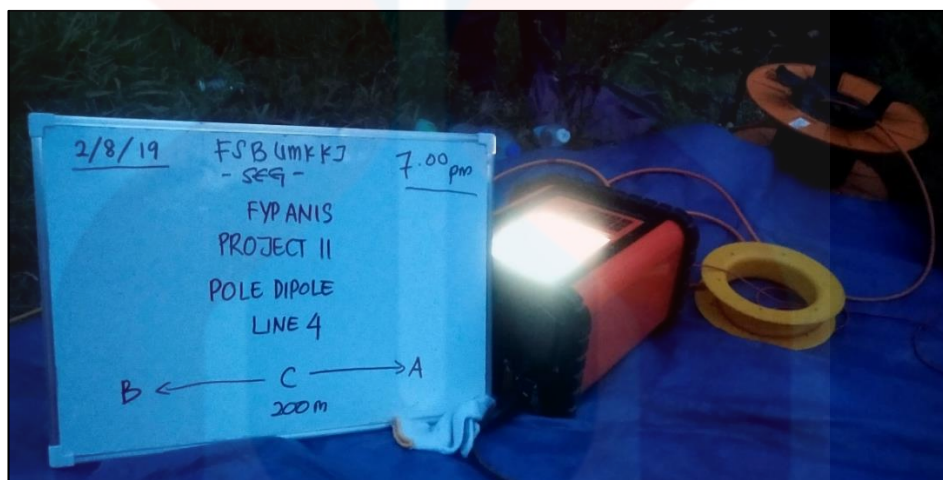 2/8/19 FSB UMKKJ 7.00 pm
- SEG -
FYP ANIS
PROJECT II
POLE DIPOLE
LINE 4
B ← C → A
200m